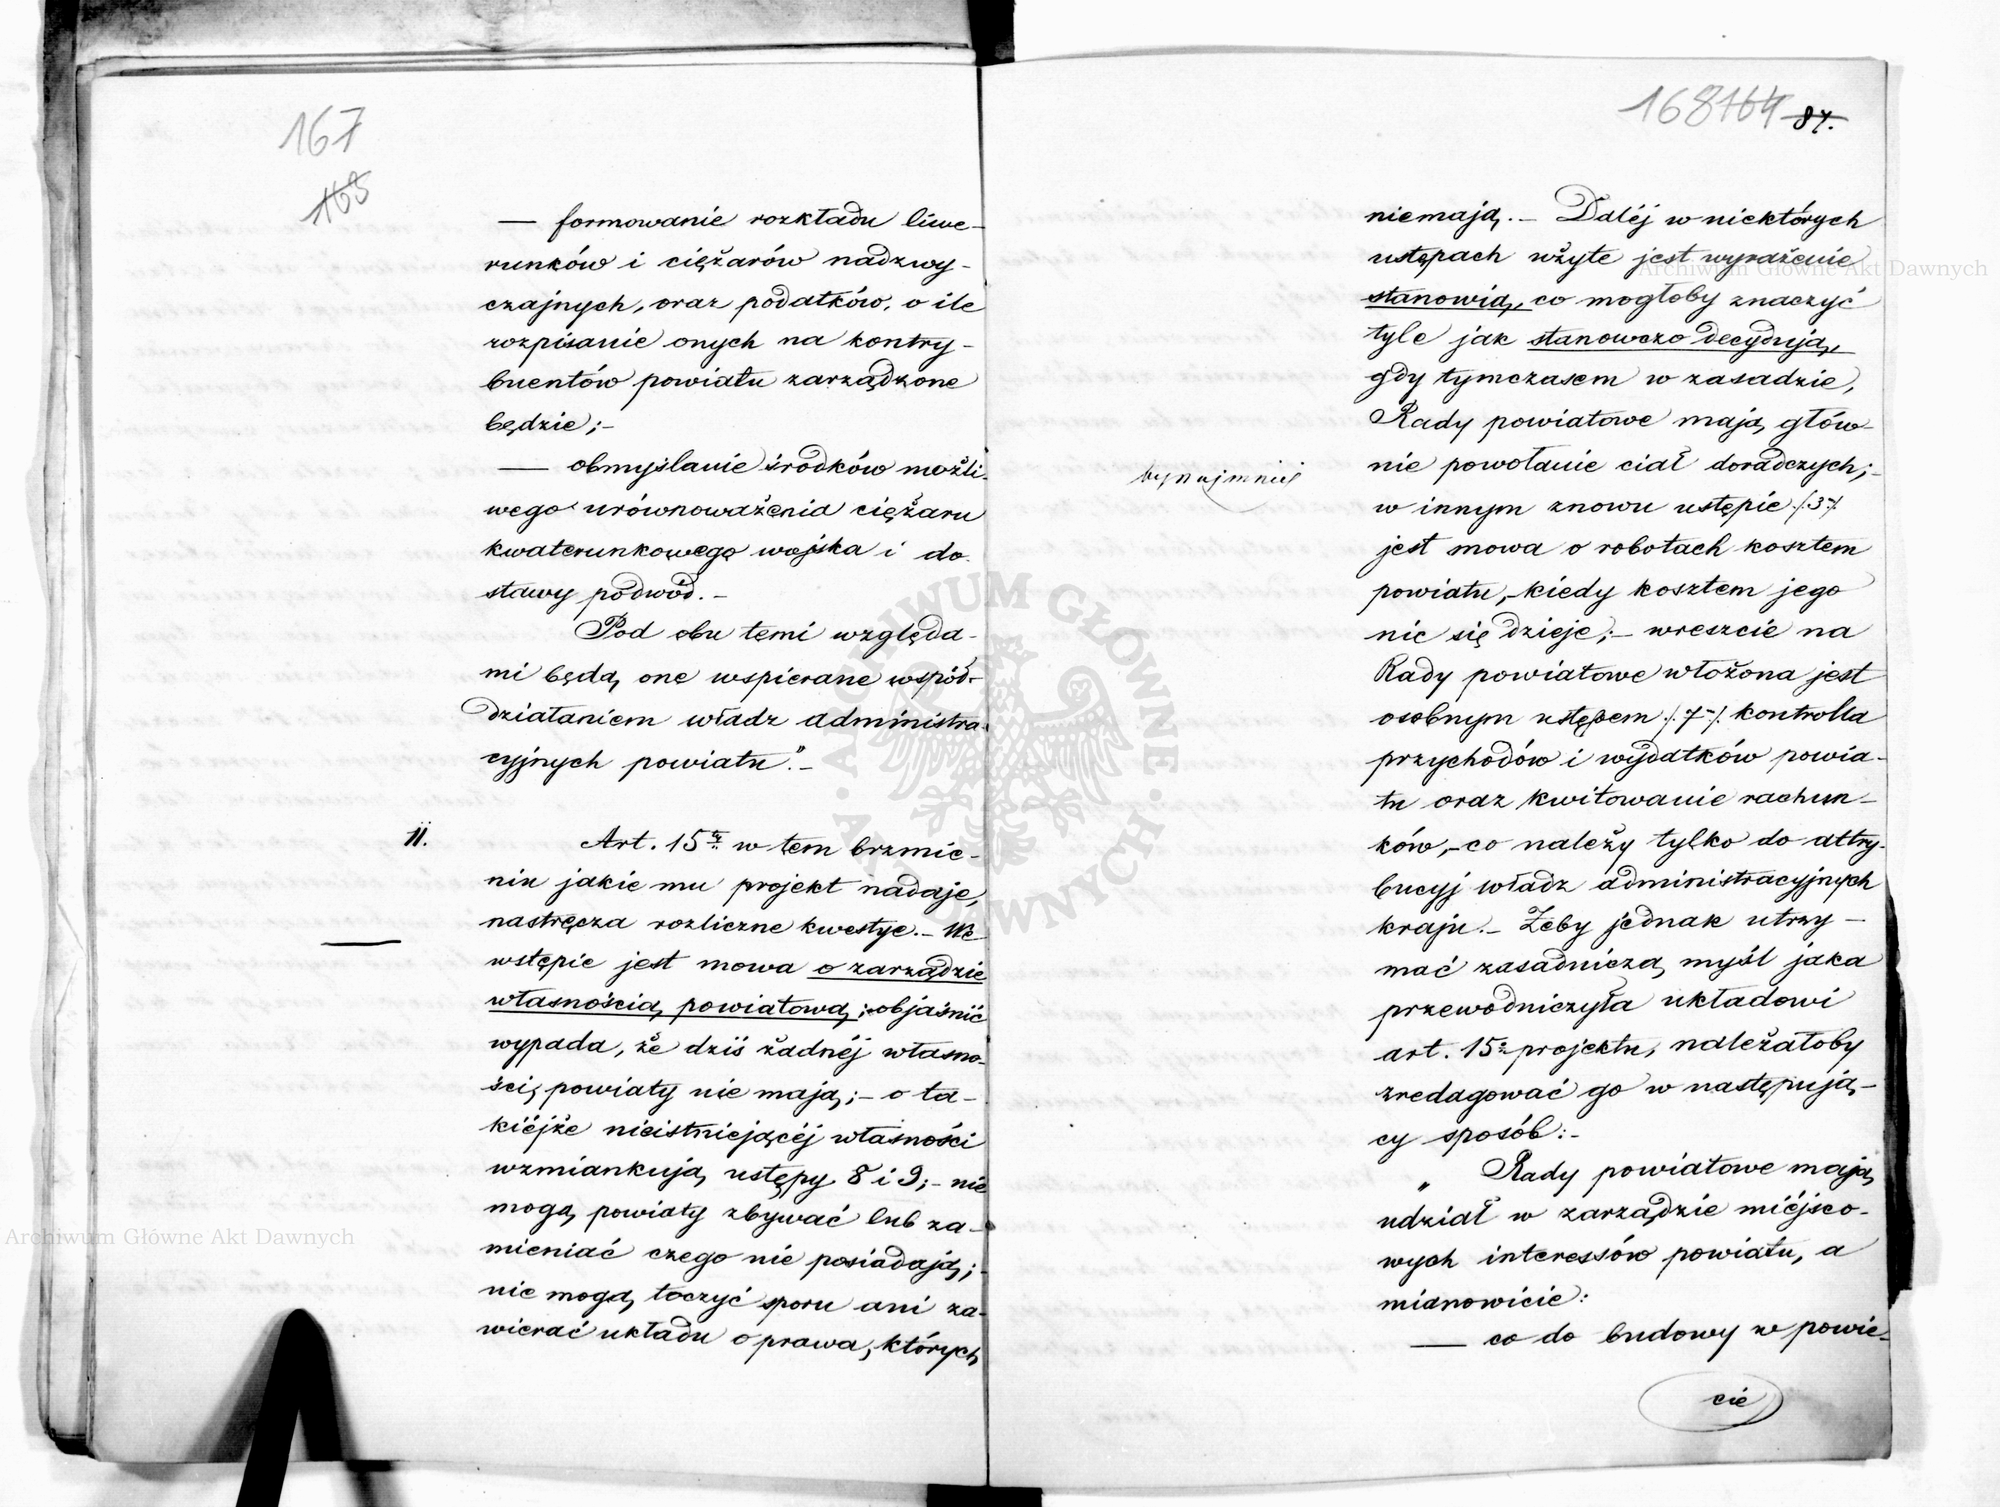 167
165
— formowanie rozkładu liwe-
runków i ciężarów nadzwy-
czajnych, oraz podatków, o ile
rozpisanie onych na kontry-
buentów powiatu zarządzone
będzie;-
— obmyślanie środków możli-
wego urównoważenia ciężaru
kwaterunkowego wojska i do-
stawy podwód.-
Pod obu temi względa-
mi będą one wspierane wspód-
działaniem władz administra-
cyjnych powiatu".-
11.
Art. 15ty w tem brzmie-
niu jakie mu projekt nadaje,
nastręcza rozliczne kwestye.- We
wstępie jest mowa o zarządzie
własnością powiatową; objaśnić
wypada, że dziś żadnéj własno-
ści, powiaty nie mają;- o ta-
kiéjże nieistniejącéj własności
wzmiankują ustępy 8 i 9;- nie
mogą powiaty zbywać lub za-
mieniać czego nie posiadają;-
nie mogą toczyć sporu ani za-
wierać układu o prawa, których
168 164 87.
niemają.- Daléj w niektórych
ustępach użyte jest wyrażenie
stanowią, co mogłoby znaczyć
tyle jak stanowczo decydują,
gdy tymczasem w zasadzie,
Rady powiatowe mają głów-
nie powołanie ciał doradczych;-
bynajmniej
w innym znowu ustępie /:3:/
jest mowa o robotach kosztem
powiatu,- kiedy kosztem jego
nic się dzieje;- wreszcie na
Rady powiatowe włożona jest
osobnym ustępem /:7:/ kontrolla
przychodów i wydatków powia-
tu oraz kwitowanie rachun-
ków,- co należy tylko do attry-
bucyj władz administracyjnych
kraju.- Żeby jednak utrzy-
mać zasadniczą myśl jaka
przewodniczyła układowi
art. 15 projektu, należałoby
zredagować go w następują-
cy sposób:-
„ Rady powiatowe mają
udział w zarządzie miéjsco-
wych interessów powiatu, a
mianowicie:
— co do budowy w powie-
cie
Archiwum Główne Akt Dawnych
Archiwum Główne Akt Dawnych
ARCHIWUM GŁÓWNE AKT DAWNYCH